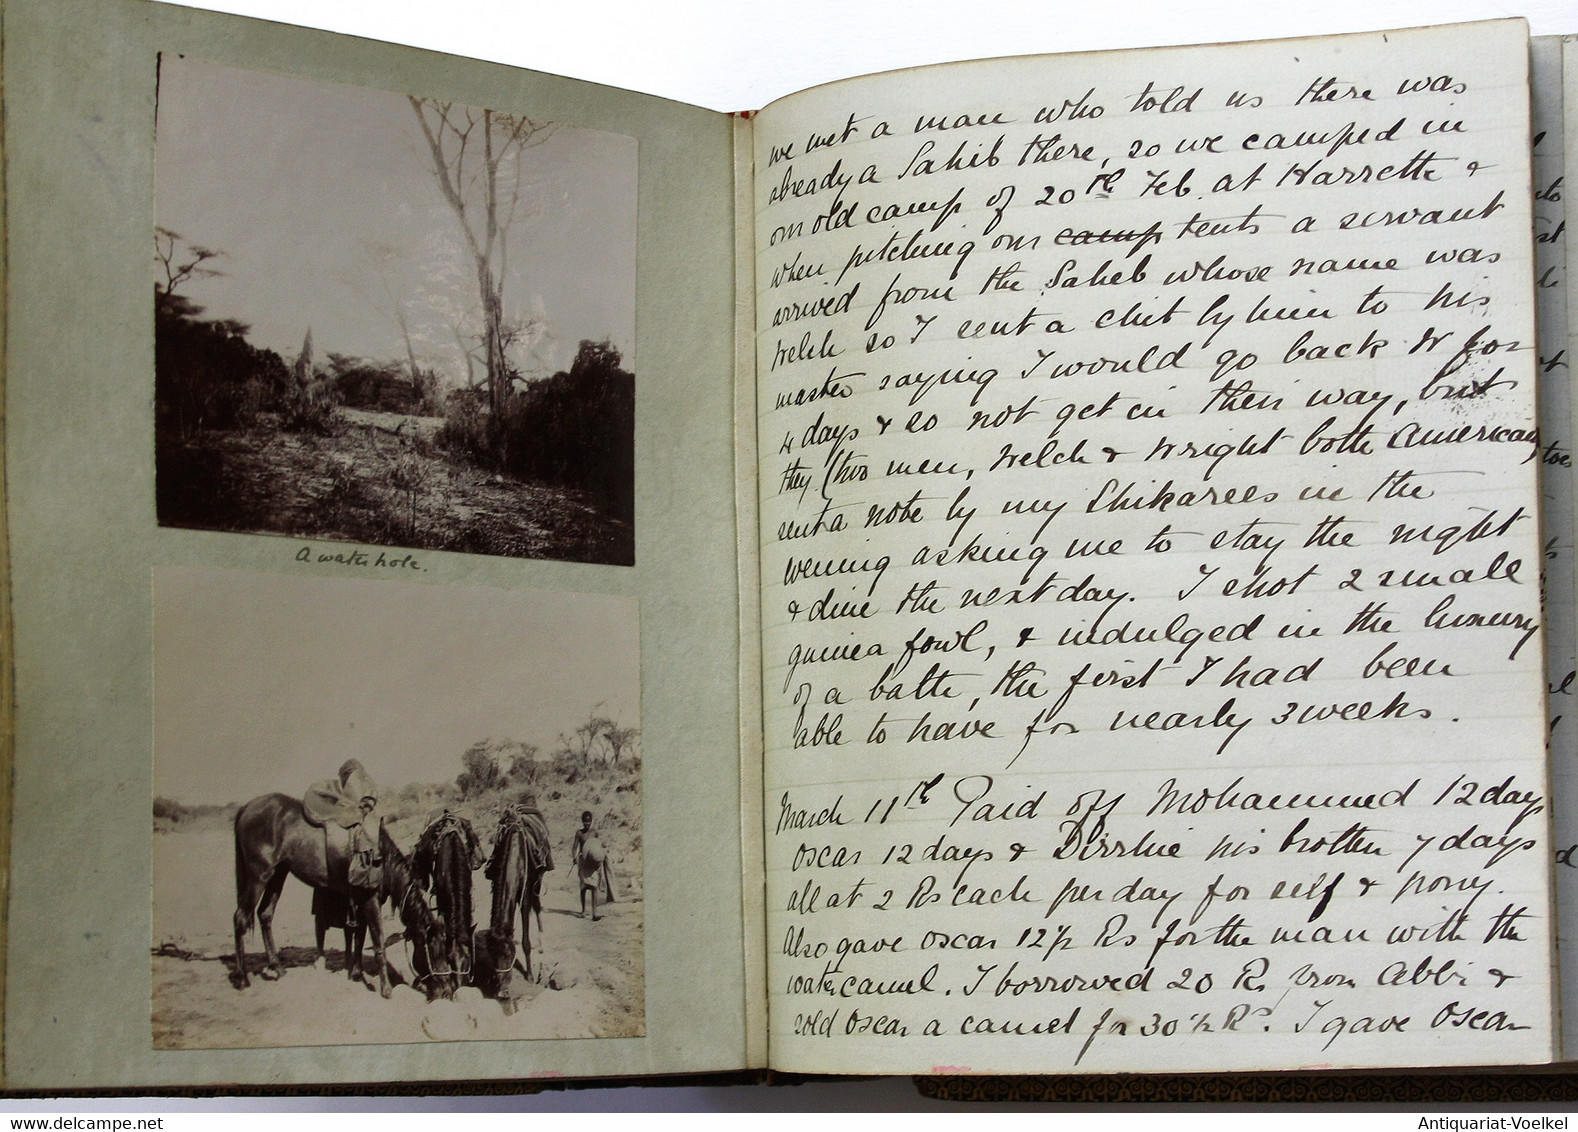 A water hole.
we met a man who told us there was
already a Sahib there, so we camped in
our old camp of 20th Feb. at Harrette &
when pitching our camp tents a servant
arrived from the Saheb whose name was
Welch so I sent a chit by him to his
master saying I would go back W for
4 days & so not get in their way, but
they (two men, Welch & Wright both American)
sent a note by my Shikarees in the
evening asking me to stay the night
& dine the next day. I shot 2 small
guinea fowl, & indulged in the luxury
of a bath, the first I had been
able to have for nearly 3 weeks.
March 11th Paid off Mohammed 12 days
Oscar 12 days & Dirrhie his brother 7 days
all at 2 Rs each per day for self & pony.
Also gave Oscar 12½ Rs for the man with the
water camel. I borrowed 20 Rs from Abbi &
sold Oscar a camel for 30½ Rs. I gave Oscar
Antiquariat-Voelkel
delcampe.net